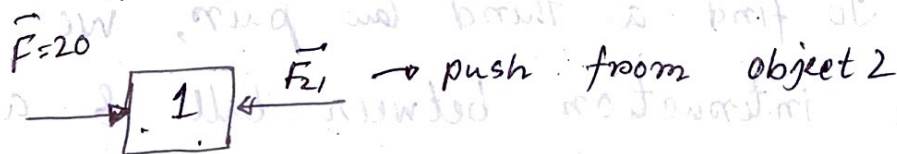 F⃗=20
1 F⃗₂₁ → push from object 2